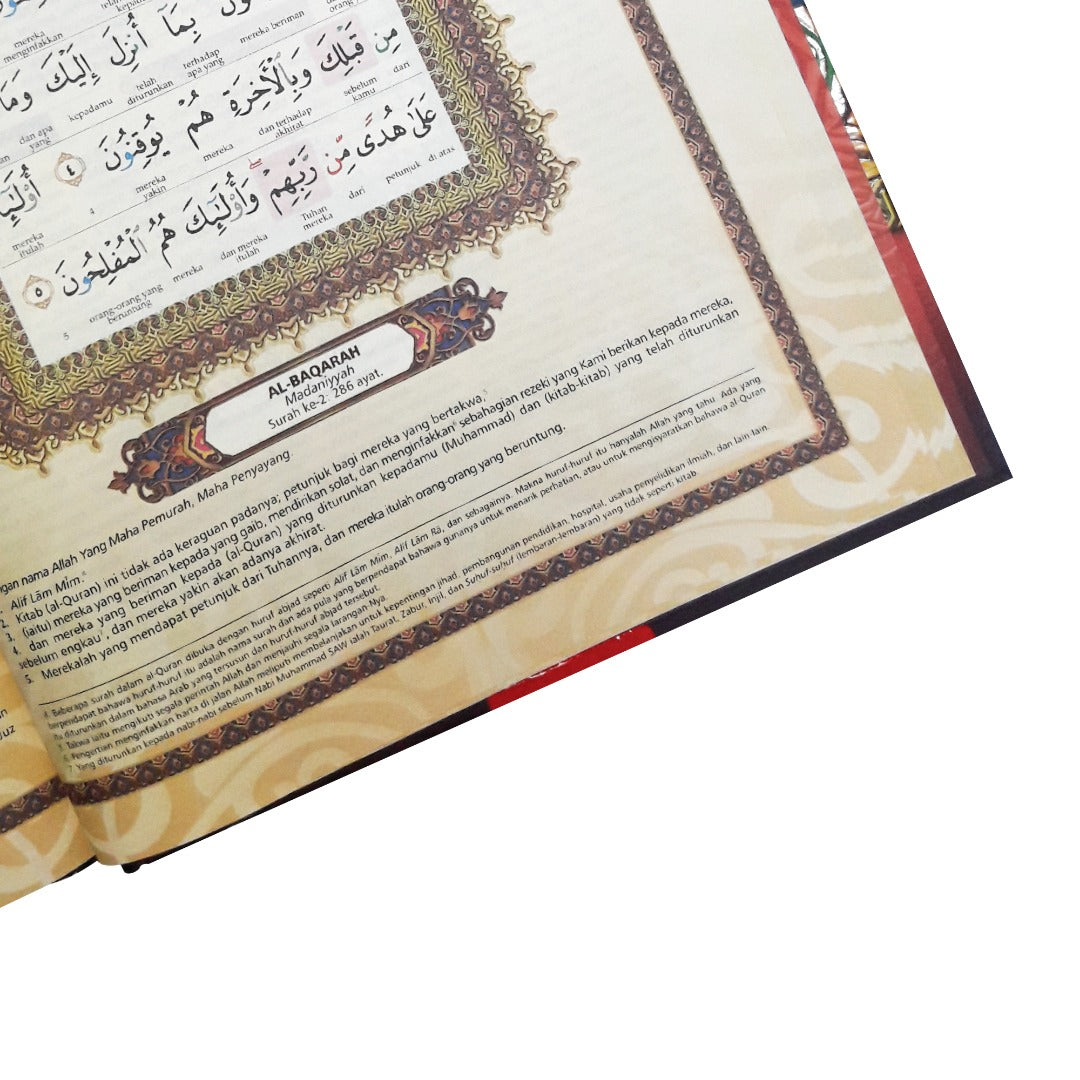 مِن
بِمَآ أُنزِلَ إِلَيْكَ وَمَآ
mereka
menginfakkan
mereka beriman
terhadap
apa yang
telah
diturunkan
kepadamu
dan apa
yang
مِن قَبْلِكَ وَبِٱلْأَخِرَةِ هُمْ يُوقِنُونَ ٤ أُو۟لَٰٓئِكَ
dari
sebelum
kamu
dan terhadap
akhirat
mereka
mereka
yakin
4
mereka
itulah
عَلَىٰ هُدًى مِّن رَّبِّهِمْ وَأُو۟لَٰٓئِكَ هُمُ ٱلْمُفْلِحُونَ ٥
di atas
petunjuk
dari
Tuhan
mereka
dan mereka
itulah
mereka
orang-orang yang
beruntung
5
AL-BAQARAH
Madaniyyah
Surah ke-2: 286 ayat.
nama Allah Yang Maha Pemurah, Maha Penyayang.
Alif Lâm Mîm.
2. Kitab (al-Quran) ini tidak ada keraguan padanya; petunjuk bagi mereka yang bertakwa,
3. (iaitu) mereka yang beriman kepada yang gaib, mendirikan solat, dan menginfakkan⁶ sebahagian rezeki yang Kami berikan kepada mereka,
4. dan mereka yang beriman kepada (al-Quran) yang diturunkan kepadamu (Muhammad) dan (kitab-kitab) yang telah diturunkan
sebelum engkau⁷, dan mereka yakin akan adanya akhirat.
5. Merekalah yang mendapat petunjuk dari Tuhannya, dan mereka itulah orang-orang yang beruntung.
4 Beberapa surah dalam al-Quran dibuka dengan huruf abjad seperti: Alif Lâm Mîm, Alif Lâm Râ, dan sebagainya. Makna huruf-huruf itu hanyalah Allah yang tahu. Ada yang
berpendapat bahawa huruf-huruf itu adalah nama surah dan ada pula yang berpendapat bahawa gunanya untuk menarik perhatian, atau untuk mengisyaratkan bahawa al-Quran
itu diturunkan dalam bahasa Arab yang tersusun dari huruf-huruf abjad tersebut.
5 Takwa iaitu mengikuti segala perintah Allah dan menjauhi segala larangan-Nya.
6 Pengertian menginfakkan harta di jalan Allah meliputi membelanjakan untuk kepentingan jihad, pembangunan pendidikan, hospital, usaha penyelidikan ilmiah, dan lain-lain.
7 Yang diturunkan kepada nabi-nabi sebelum Nabi Muhammad SAW ialah Taurat, Zabur, Injil, dan Suhuf-suhuf (lembaran-lembaran) yang tidak seperti kitab.